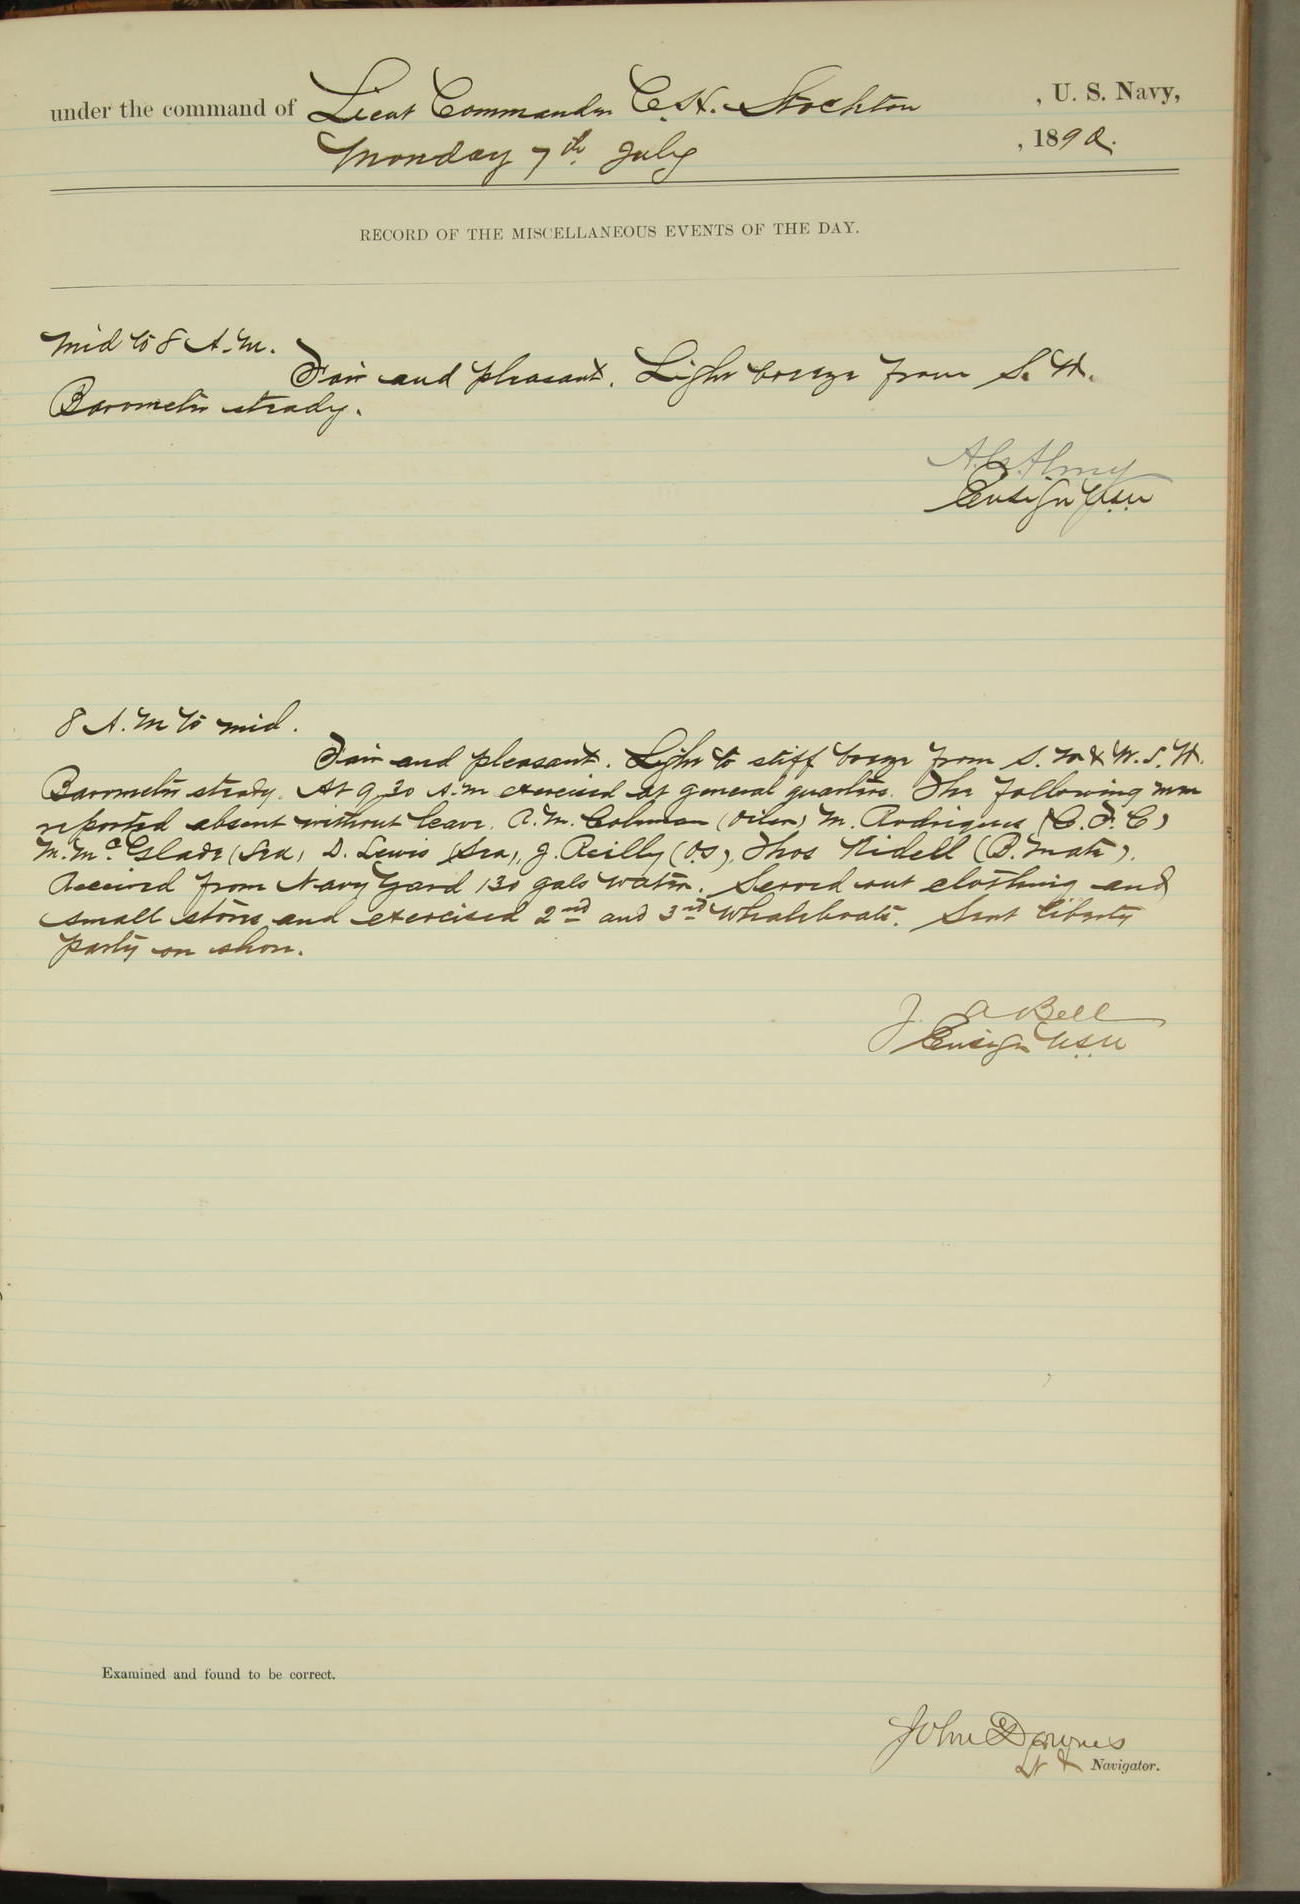 under the command of Lieut Commander C. H. Stockton, U. S. Navy,
Monday 7th July, 1890.
RECORD OF THE MISCELLANEOUS EVENTS OF THE DAY.
Mid to 8 A.M.
Fair and pleasant. Light breeze from S. W.
Barometer steady.
A. C. Almy
Ensign USN
8 A.M to mid.
Fair and pleasant. Light to stiff breeze from S. W & W. S. W.
Barometer steady. At 9 30 A.M exercised at general quarters. The following men
reported absent without leave. A. M. Colman (Oiler) M. Rodrigues (C. F. C)
M. McGlade (Sea) D. Lewis (Sea), J. Reilly (O.S), Thos Nidell (B. Mate).
Received from Navy Yard 130 gals water. Served out clothing and
small stores and exercised 2nd and 3rd Whaleboats. Sent liberty
party on shore.
J. A Bell
Ensign USN
Examined and found to be correct.
John Downes
Lt & Navigator.